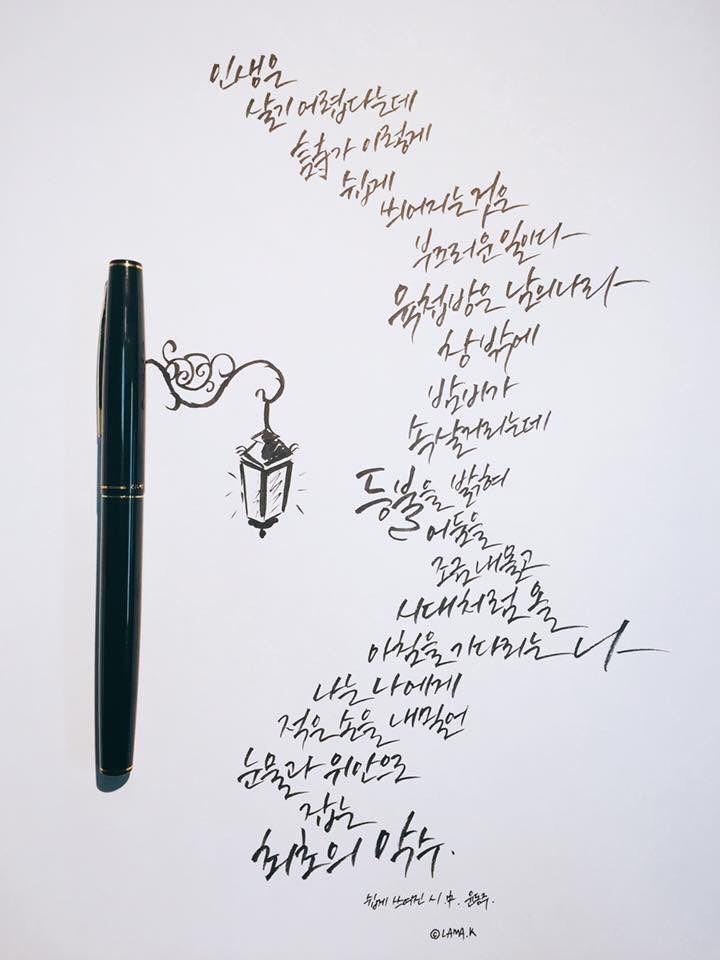 인생은
살기 어렵다는데
詩가 이렇게
쉽게
씌어지는 것은
부끄러운 일이다
육첩방은 남의 나라
창 밖에
밤비가
속살거리는데
등불을 밝혀
어둠을
조금 내몰고
시대처럼 올
아침을 기다리는 나
나는 나에게
적은 손을 내밀어
눈물과 위안으로
잡는
최초의 악수.
쉽게 쓰여진 시 中. 윤동주.
©LAMA.K